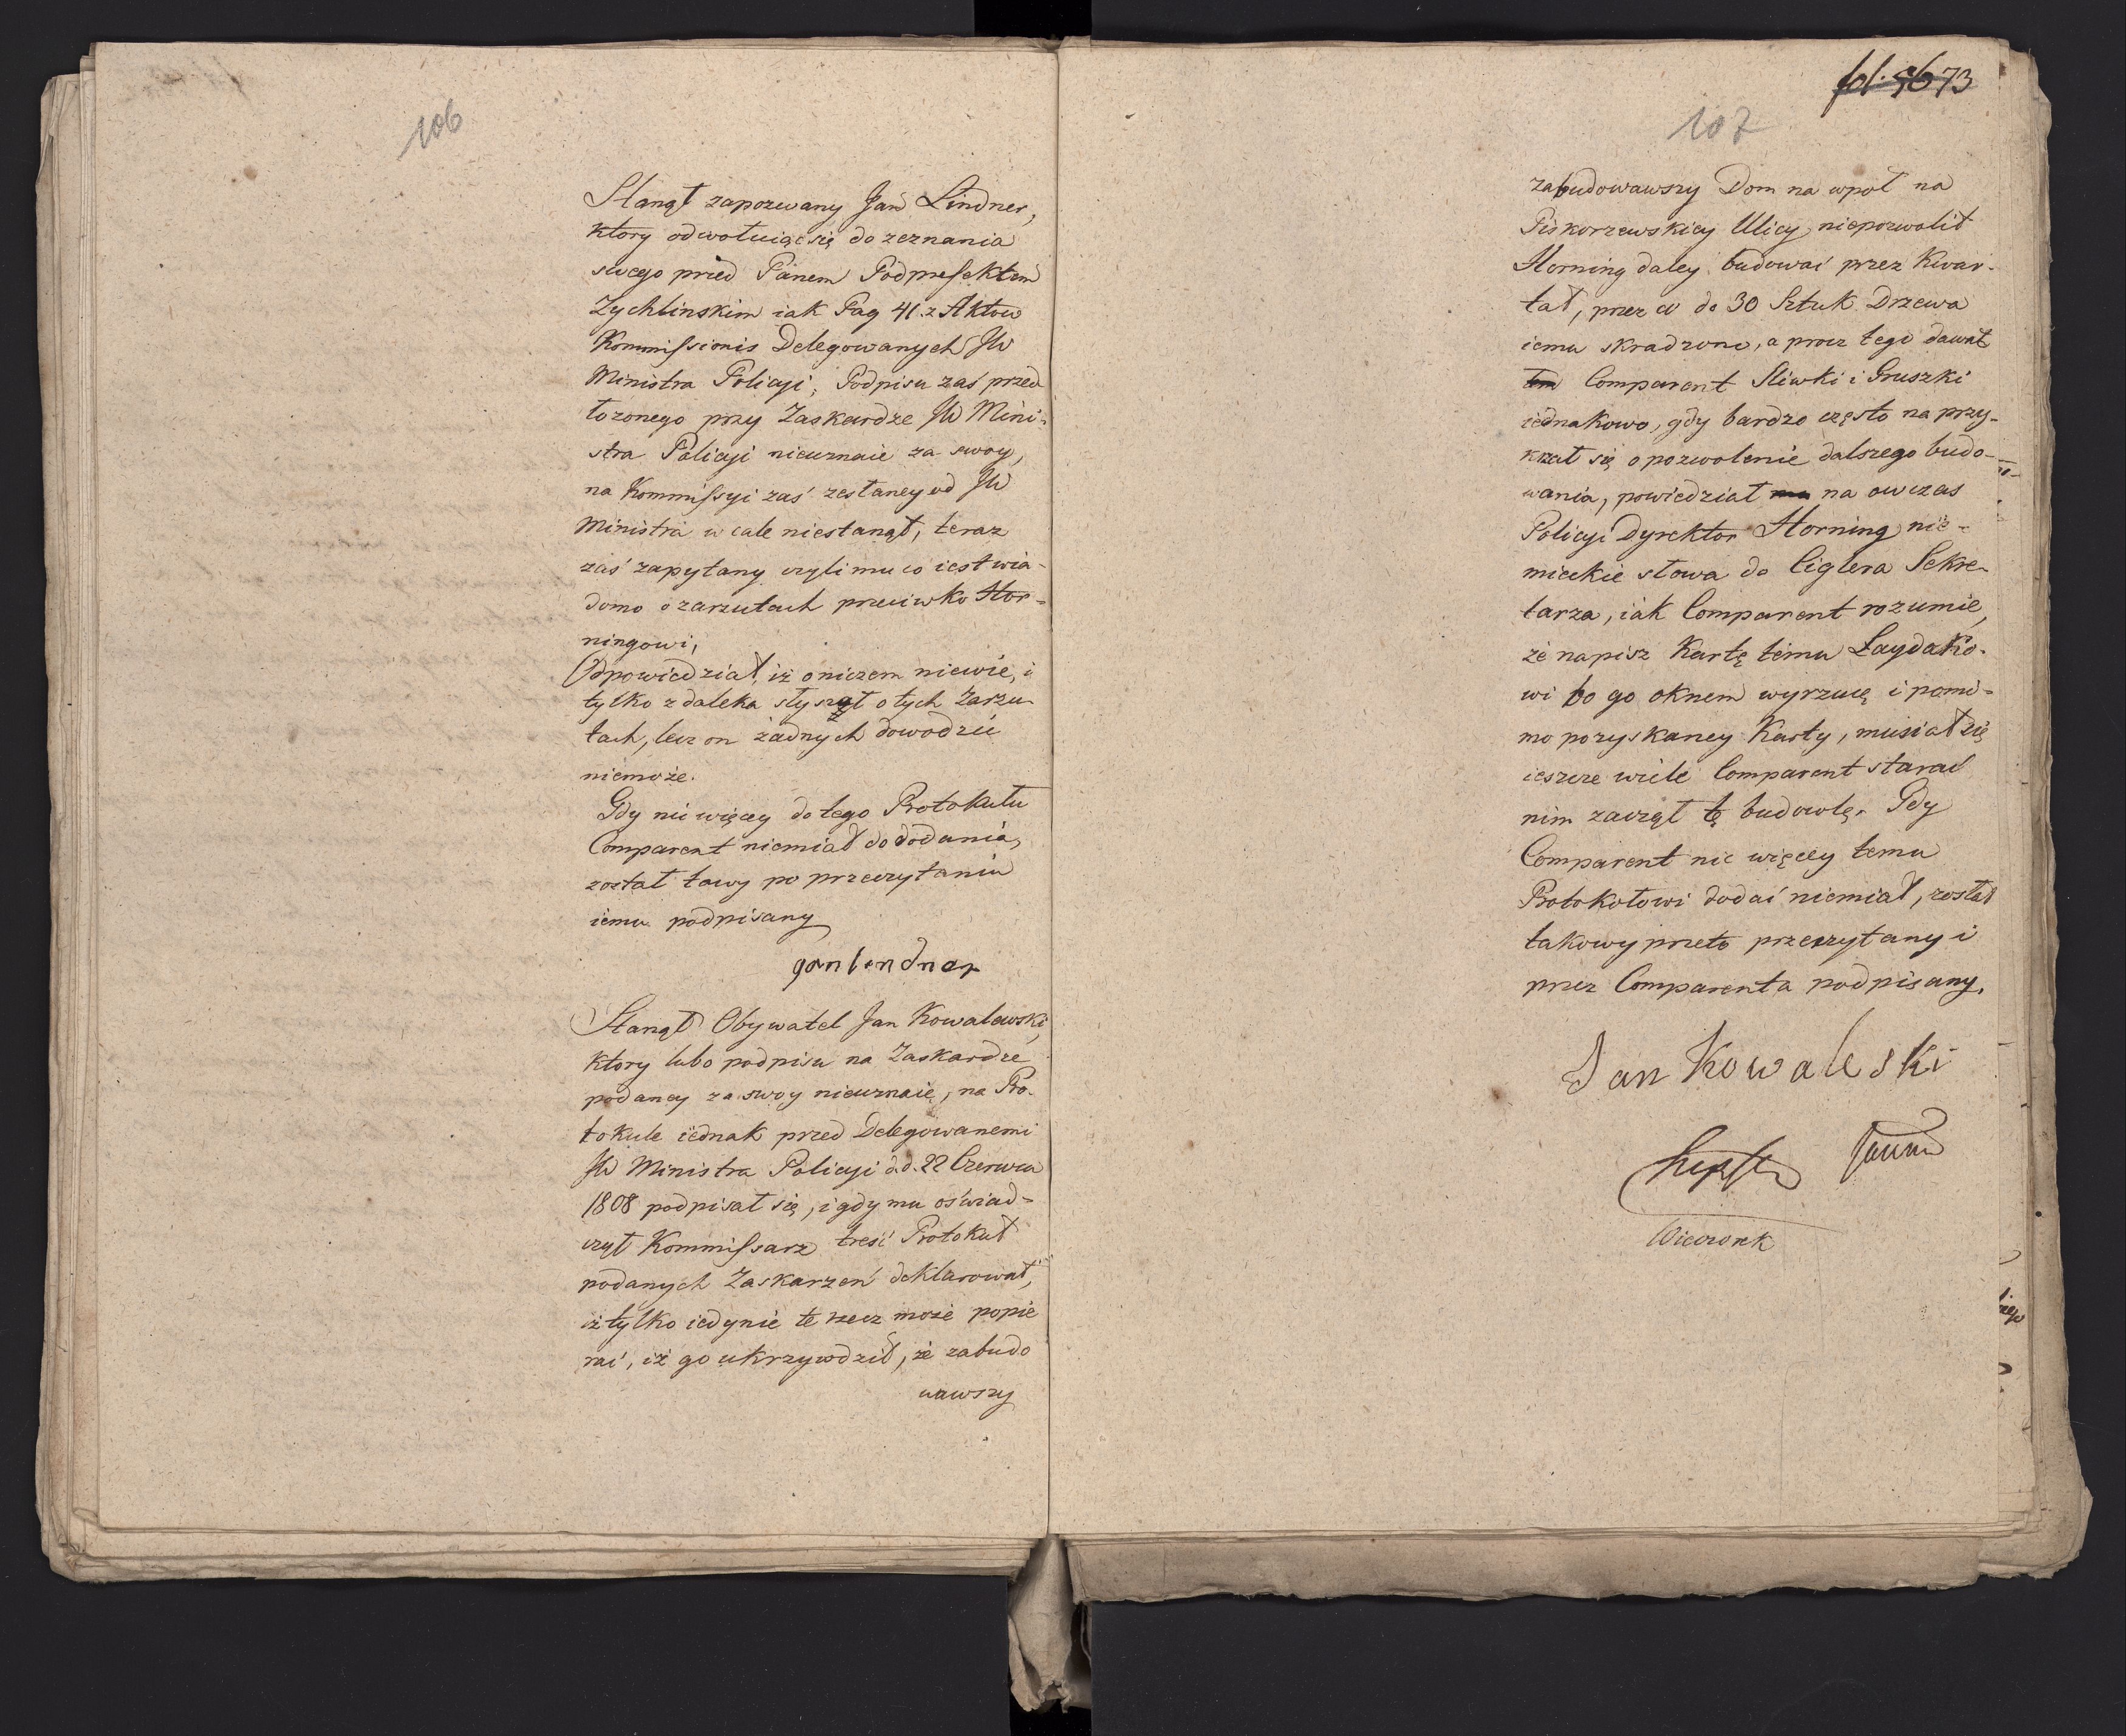 106
Stanął zapozwany Jan Lindner,
ktory odwołuiąc się do zeznania
swego przed Panem Podprefektem
Zychlinskim iak Pag 41. z Aktow
Kommissionis Delegowanych JW
Ministra Policyi, Podpisu zaś przed
łozonego przy Zaskardze JW Mini-
stra Policyi nieuznaie za swoy,
na Kommissyi zaś zesłaney od JW
Ministra w cale niestanął, teraz
zaś zapytany czyli mu co iest wia-
domo o zarzutach przeciwko Hor-
ningowi,
Odpowiedział, iż oniczem niewie, i
tylko z daleka słyszał o tych Zarzu-
tach, lecz on żadnych dowodzić
niemoże.
Gdy nic więcey do tego Protokułu
Comparent niemiał do dodania,
został takowy po przeczytaniu
iemu podpisany
Jan lendner
Stanął Obywatel Jan Kowalewski,
ktory lubo podpisu na Zaskardze
podaney za swoy nieuznaie, na Pro-
tokule iednak przed Delegowanemi
JW Ministra Policyi d.d. 22 Czerwca
1808 podpisał się, i gdy mu oświad-
czył Kommissarz treść Protokuł
podanych Zaskarzeń deklarował,
iż tylko iedynie te rzecz może popie
rać, iż go ukrzywdził, że zabudo
wawszy
fol. 56 73
107
zabudowawszy Dom na wpoł na
Piskorzewskiey Ulicy niepozwolił
Horning daley budować przez Kwar-
tał, przez co do 30 Sztuk Drzewa
iemu skradzono, a procz tego dawał
Comparent Sliwki i Gruszki
iednakowo, gdy bardzo często na przy-
krzał się o pozwolenie dalszego budo-
wania, powiedział mu na owczas
Policyi Dyrektor Horning nie-
mieckie słowa do Ciglera Sekre-
tarza, iak Comparent rozumie,
że napisz Kartę temu Łaydako-
wi bo go oknem wyrzucę i pomi-
mo pozyskaney Karty, musiał się
ieszcze wiele Comparent starać
nim zaczął tę budowlę. Gdy
Comparent nic więcey temu
Protokołowi dodać niemiał, został
takowy przeto przeczytany i
przez Comparenta podpisany.
Jan Kowaleski
Wieczorek